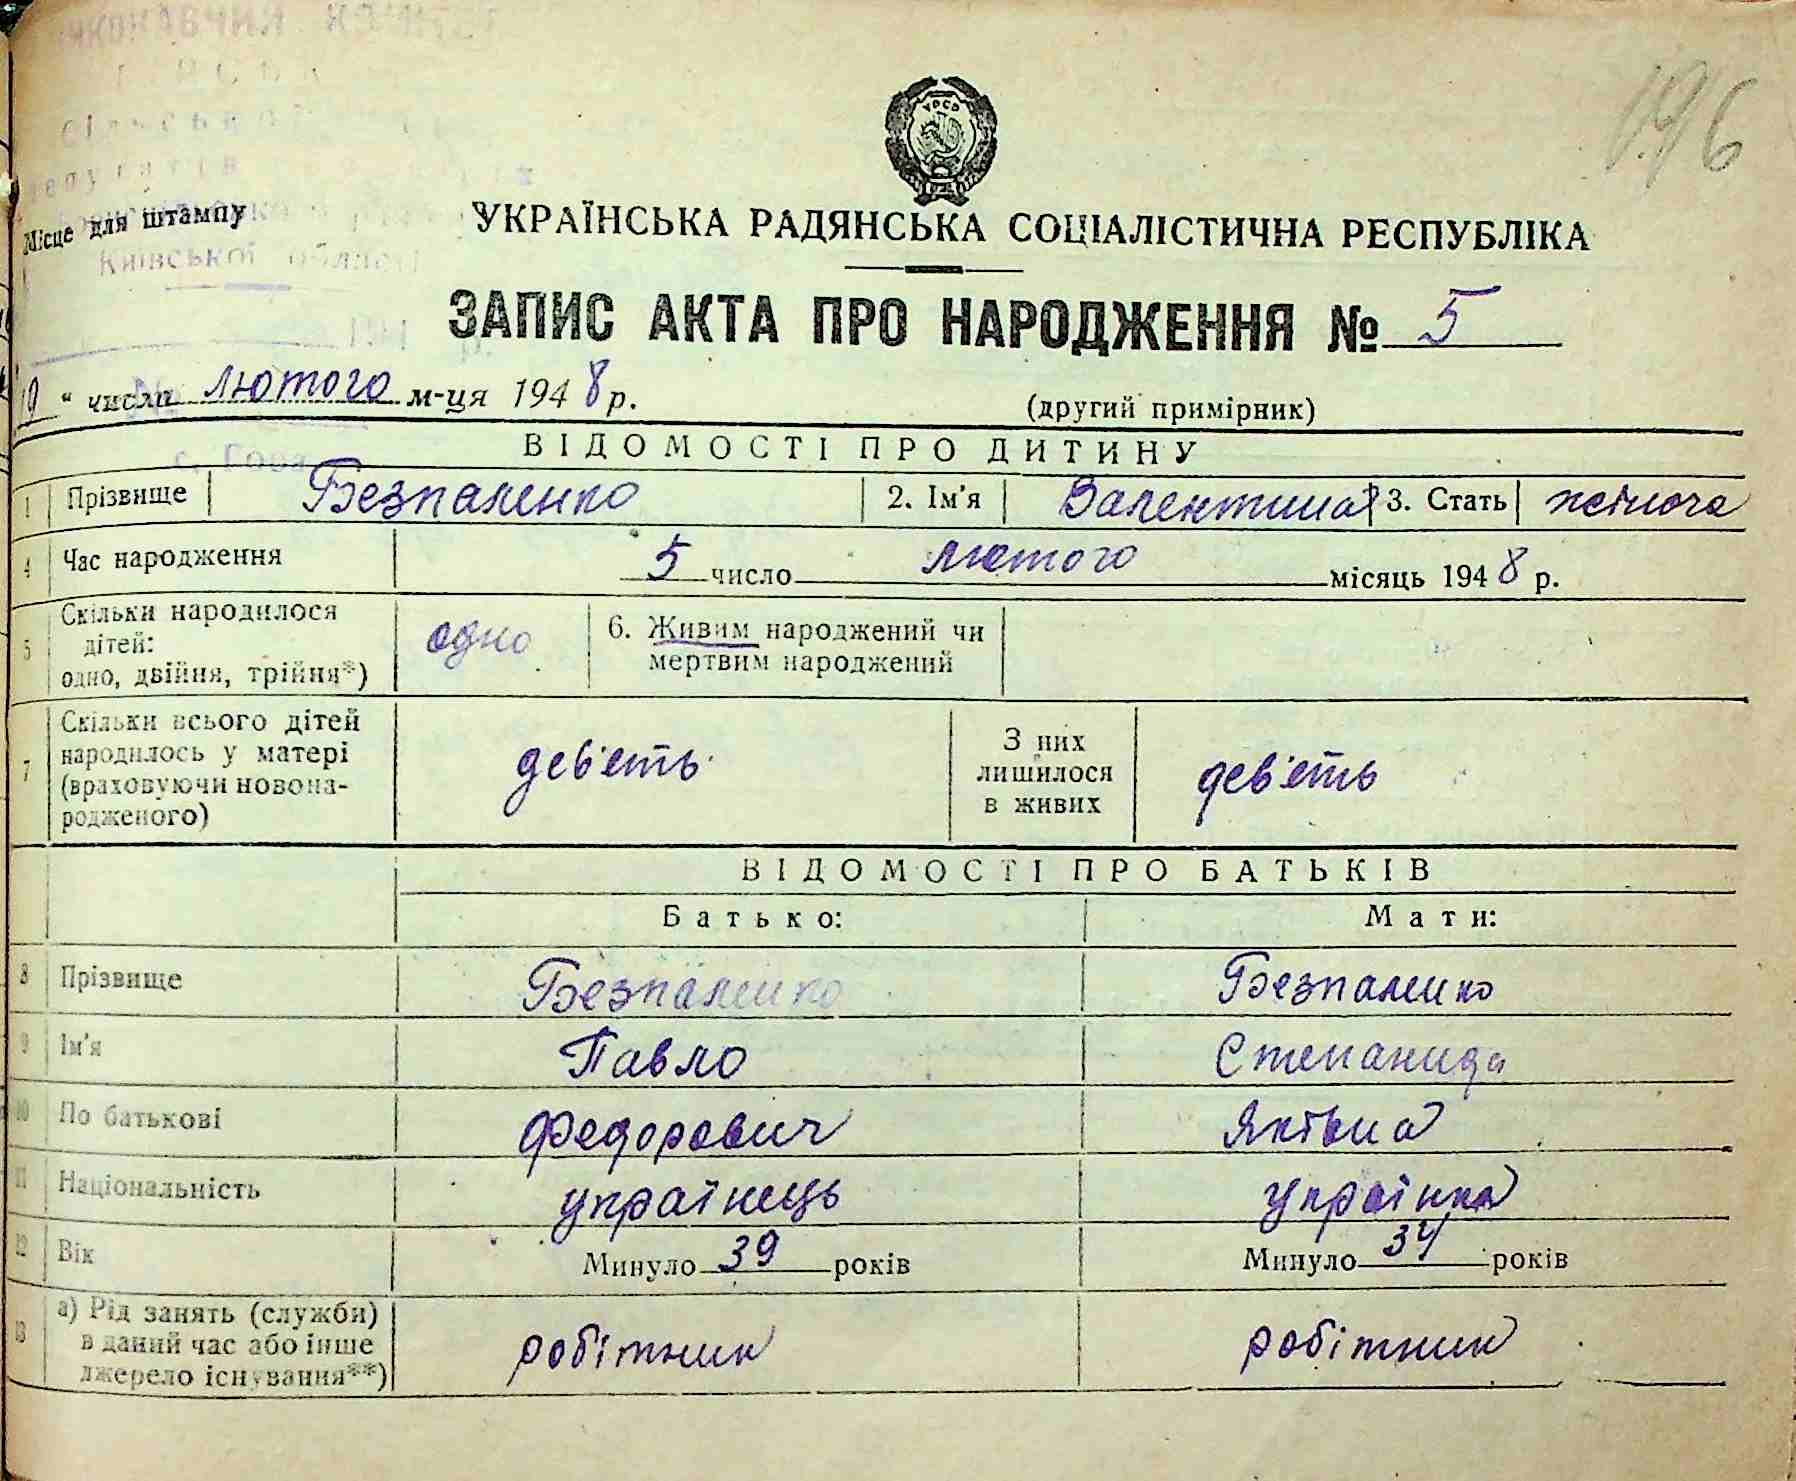 196
УРСР
Місце для штампу
Київської області
УКРАЇНСЬКА РАДЯНСЬКА СОЦІАЛІСТИЧНА РЕСПУБЛІКА
ЗАПИС АКТА ПРО НАРОДЖЕННЯ № 5
19 " числа лютого м-ця 1948 р.
(другий примірник)
с. Гора
ВІДОМОСТІ ПРО ДИТИНУ
1 Прізвище Безпаленко 2. Ім'я Валентина 3. Стать жіноча
4 Час народження 5 число лютого місяць 1948 р.
5 Скільки народилося дітей: одно, двійня, трійня*) одно 6. Живим народжений чи мертвим народжений
7 Скільки всього дітей народилось у матері (враховуючи новонародженого) дев'еть З них лишилося в живих дев'еть
ВІДОМОСТІ ПРО БАТЬКІВ
Батько: Мати:
8 Прізвище Безпаленко Безпаленко
9 Ім'я Павло Степанида
10 По батькові Федорович
11 Національність українець українка
12 Вік Минуло 39 років Минуло 34 років
13 а) Рід занять (служби) в даний час або інше джерело існування**) робітник робітник